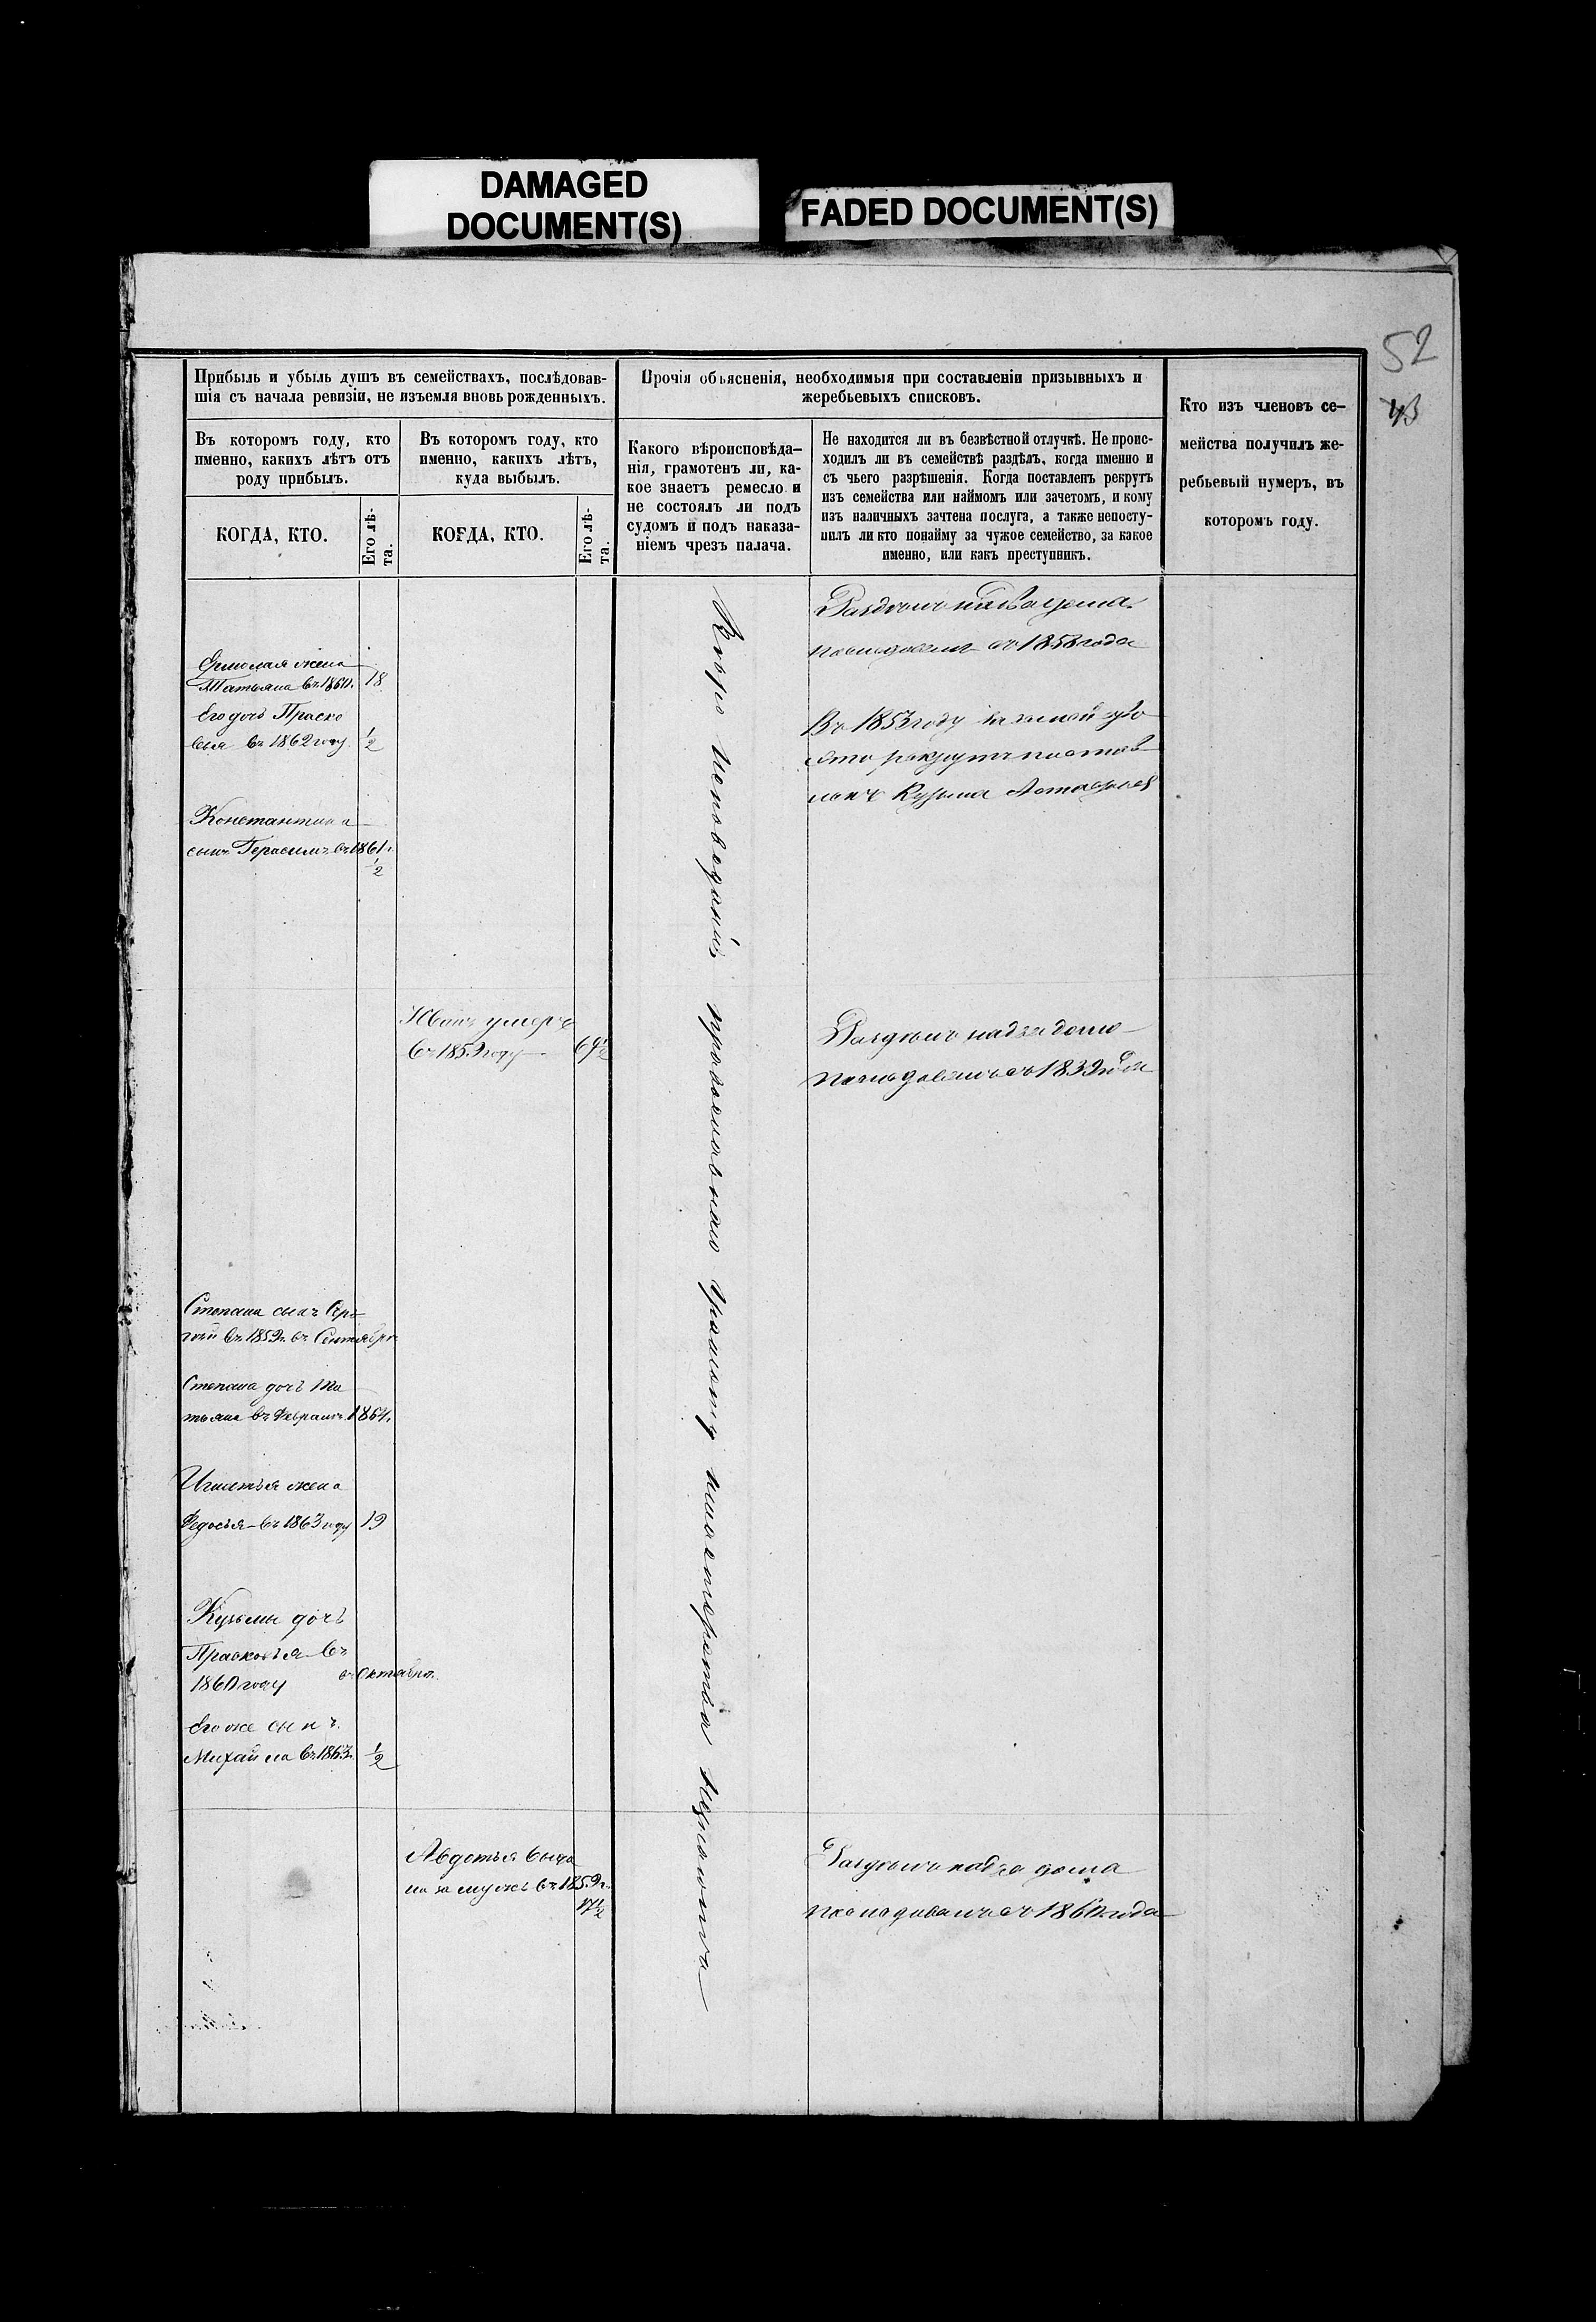 DAMAGED
DOCUMENT(S)
FADED DOCUMENT(S)
52
43
Прибыль и убыль душъ въ семействахъ, послѣдовав-
шія съ начала ревизіи, не изъемля вновь рожденныхъ.
Прочія объясненія, необходимыя при составленіи призывныхъ и
жеребьевыхъ списковъ.
Кто изъ членовъ се-
мейства получилъ же-
ребьевый нумеръ, въ
которомъ году.
Въ которомъ году, кто
именно, какихъ лѣтъ отъ
роду прибылъ.
Въ которомъ году, кто
именно, какихъ лѣтъ,
куда выбылъ.
Какого вѣроисповѣда-
нія, грамотенъ ли, ка-
кое знаетъ ремесло и
не состоялъ ли подъ
судомъ и подъ наказа-
ніемъ чрезъ палача.
Не находится ли въ безвѣстной отлучкѣ. Не проис-
ходилъ ли въ семействѣ раздѣлъ, когда именно и
съ чьего разрѣшенія. Когда поставленъ рекрутъ
изъ семейства или наймомъ или зачетомъ, и кому
изъ наличныхъ зачтена послуга, а также непосту-
пилъ ли кто понайму за чужое семейство, за какое
именно, или какъ преступникъ.
КОГДА, КТО.
Его лѣ-
та.
КОГДА, КТО.
Его лѣ-
та.
Ермолая жена
Татьяна въ 1860г. 18
Его дочь Праско
вья въ 1862 году ½
Константина
сынъ Герасимъ въ 1861г.
½
Степана сынъ
въ 1859г. въ Сентябрѣ
Степана дочь Та
тьяна въ Февралѣ 1864г.
Игнатья жена
Федосья въ 1863 году 19
Кузьмы дочь
Прасковья въ
1860 году въ Октябрѣ
Его же сынъ
Михайла въ 1863г. ½
Иванъ умеръ
въ 1859 году 64½
Авдотья выда
на за мужъ въ 1859г.
17½
Вѣро исповеданія православнаго грамоту мастерства незнаютъ
съ 1853 года
Въ 1853 году
рекрутъ постав
ленъ Кузьма
съ 1839 года
дома
съ 1860 года